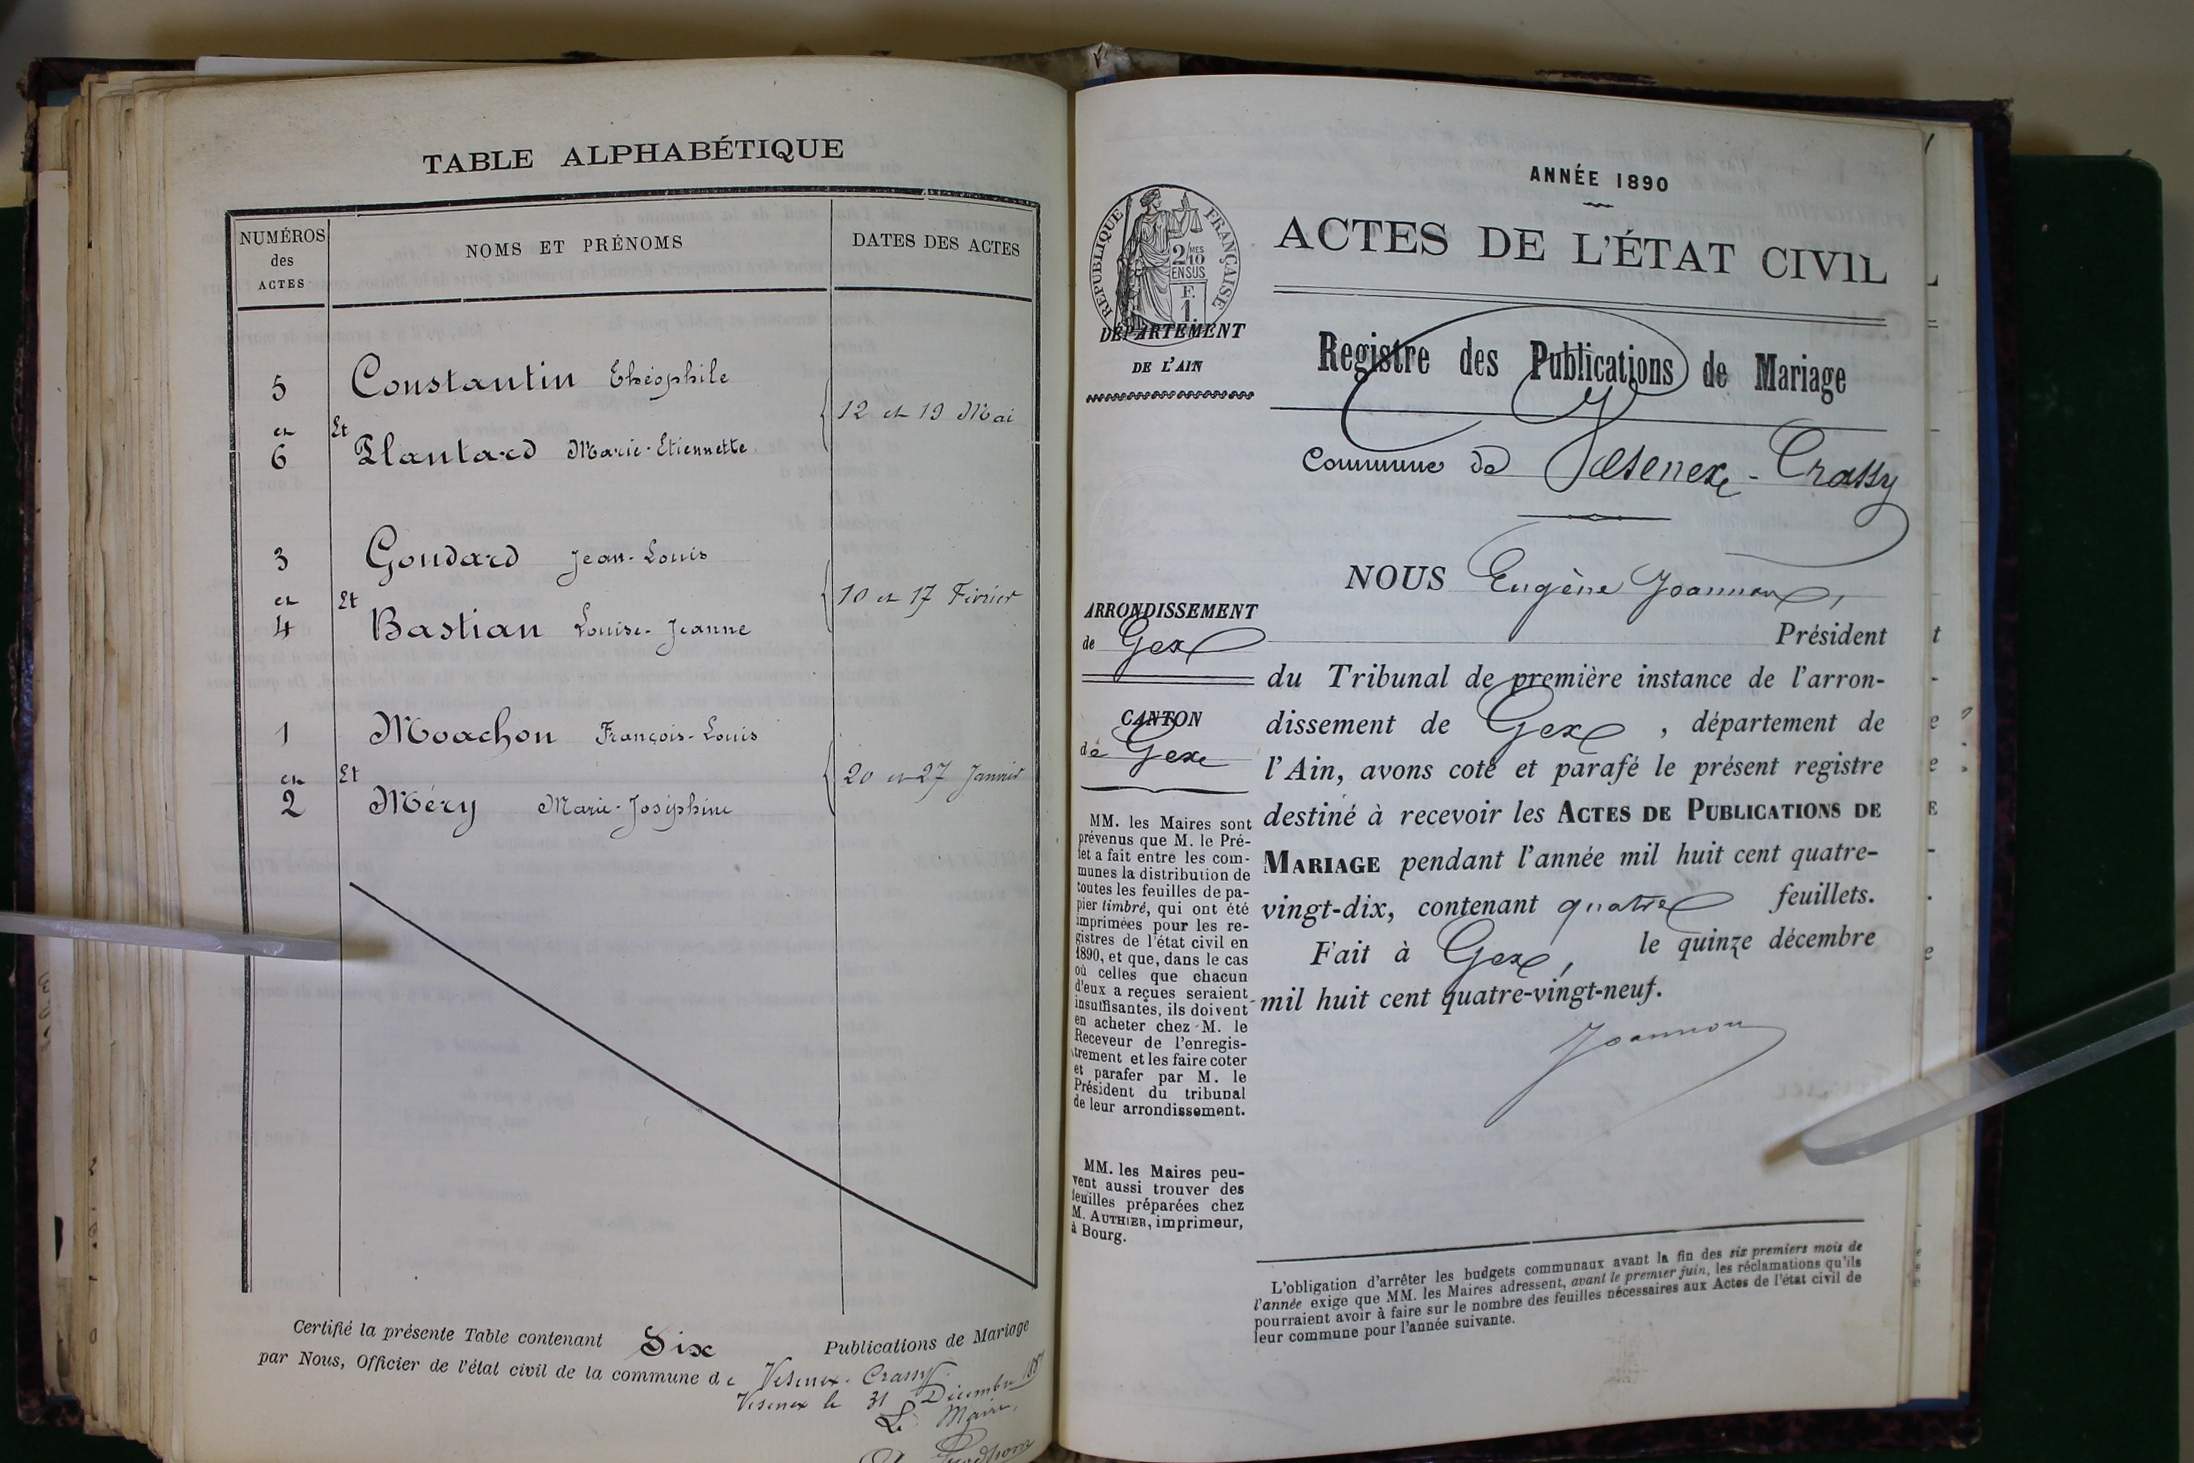 TABLE ALPHABÉTIQUE
NUMÉROS
des
ACTES
NOMS ET PRÉNOMS
DATES DES ACTES
5 Constantin Théophile
et Et 12 et 19 Mai
6 Plantard Marie-Etiennette
3 Goudard Jean-Louis
et Et 10 et 17 Février
4 Bastian Louise-Jeanne
1 Moachon François-Louis
et Et 20 et 27 Janvier
2 Méry Marie-Joséphine
Certifié la présente Table contenant Six Publications de Mariage
par Nous, Officier de l'état civil de la commune de Vesenex-Crassy
Vesenex le 31 Décembre
Le Maire,
ANNÉE 1890
ACTES DE L'ÉTAT CIVIL
RÉPUBLIQUE FRANÇAISE
2 MES
10
EN SUS
F.
1.
DÉPARTEMENT
DE L'AIN
Registre des Publications de Mariage
Commune de Vesenex-Crassy
NOUS Eugène Joannon,
Président
ARRONDISSEMENT
de Gex
CANTON
de Gex
du Tribunal de première instance de l'arron-
dissement de Gex, département de
l'Ain, avons coté et parafé le présent registre
destiné à recevoir les ACTES DE PUBLICATIONS DE
MARIAGE pendant l'année mil huit cent quatre-
vingt-dix, contenant quatre feuillets.
Fait à Gex, le quinze décembre
mil huit cent quatre-vingt-neuf.
Joannon
MM. les Maires sont
prévenus que M. le Pré-
fet a fait entre les com-
munes la distribution de
toutes les feuilles de pa-
pier timbré, qui ont été
imprimées pour les re-
gistres de l'état civil en
1890, et que, dans le cas
où celles que chacun
d'eux a reçues seraient
insuffisantes, ils doivent
en acheter chez M. le
Receveur de l'enregis-
trement et les faire coter
et parafer par M. le
Président du tribunal
de leur arrondissement.
MM. les Maires peu-
vent aussi trouver des
feuilles préparées chez
M. AUTHIER, imprimeur,
à Bourg.
L'obligation d'arrêter les budgets communaux avant la fin des six premiers mois de
l'année exige que MM. les Maires adressent, avant le premier juin, les réclamations qu'ils
pourraient avoir à faire sur le nombre des feuilles nécessaires aux Actes de l'état civil de
leur commune pour l'année suivante.